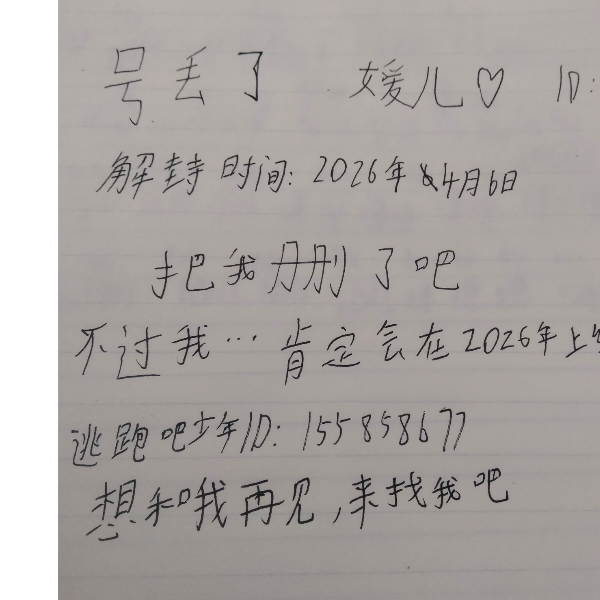 号丢了 媛儿♡ ID:
解封时间: 2026年4月6日
把我删了吧
不过我…肯定会在2026年上
逃跑吧少年ID: 155858677
想和我再见,来找我吧